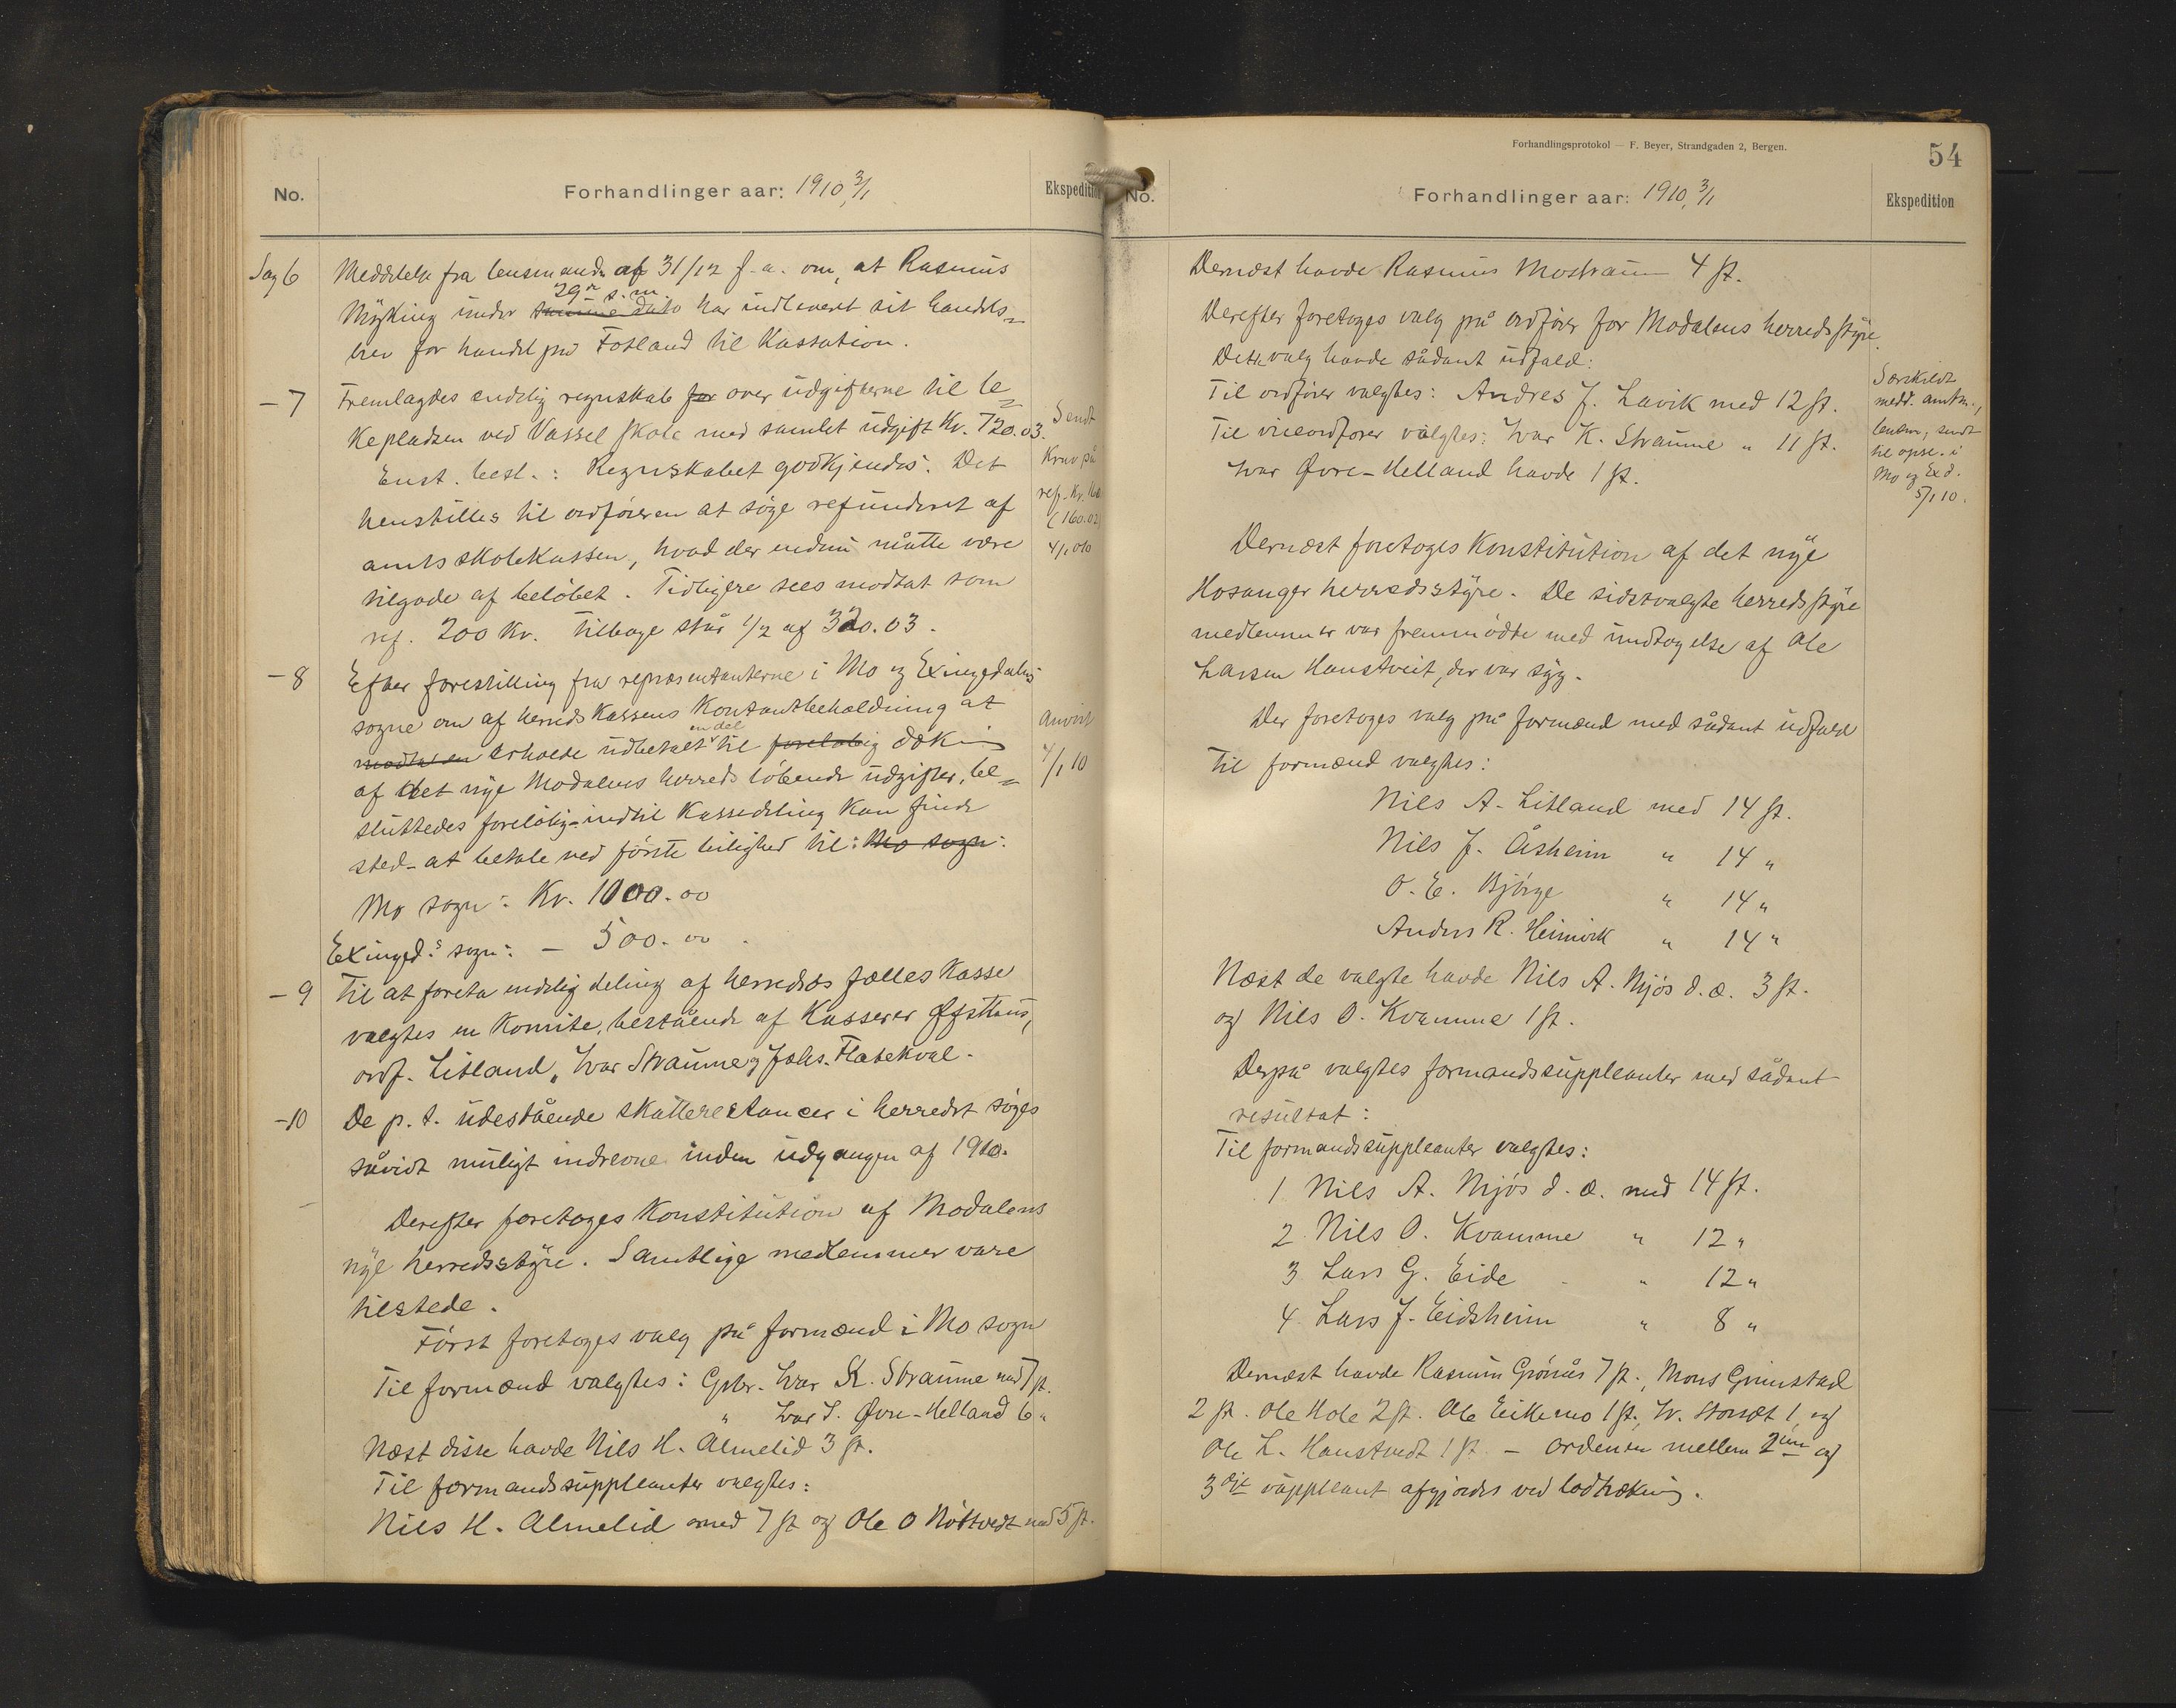 No.
Forhandlinger aar: 1910, 3/1
Ekspedition
Sag 6
Meddelelse fra lensmanden af 31/12 f.a. om, at Rasmus
Mykking under samme dato 29de s.m. har indleveret sit handels-
brev for handel på Fotland til kassation.
- 7
Fremlagdes endelig regnskab for over udgifterne til le-
kepladsen ved Vassel skole med samlet udgift kr. 720.03.
Enst. besl.: Regnskabet godkjendes. Det
henstilles til ordføreren at søge refunderet af
amtsskolekassen, hvad der endnu måtte være
tilgode af beløbet. Tidligere sees modtat som
ref. 200 kr. Tilbage står 1/2 af 320.03.
Sendt
krav på
ref. kr.
(160.02)
4/1 010
- 8
Efter forestilling fra repræsentanterne i Mo og Exingedalens
sogne om af herredskassens kontantbeholdning at
modta en erholde udbetalt en del til foreløbig dækning
af det nye Modalens herreds løbende udgifter, be-
sluttedes foreløbig - indtil kassedeling kan finde
sted - at betale ved første leilighed til: Mo sogn:
Mo sogn: Kr. 1000.00
Exinged.s sogn: - 500.00.
Anvist
4/1 10
- 9
Til at foreta endelig deling af herredets fælles kasse
valgtes en komite, bestående af kasserer Øfsthus,
ordf. Litland, Ivar Straume og Johs. Flatekval.
- 10
De p.t. udestående skatterestancer i herredet søges
såvidt muligt inddrevne inden udgangen af 1910.
Derefter foretoges konstitution af Modalens
nye herredsstyre. Samtlige medlemmer vare
tilstede.
Först foretoges valg på formænd i Mo sogn
Til formænd valgtes: Gbr. Ivar K. Straume med 7 st.
" Ivar I. Øvre-Helland 6 "
Næst disse havde Nils H. Almelid 3 st.
Til formandssuppleanter valgtes:
Nils H. Almelid med 7 st og Ole O Nøttvedt med 5 st.
Forhandlingsprotokol — F. Beyer, Strandgaden 2, Bergen.
54
No.
Forhandlinger aar: 1910, 3/1
Ekspedition
Dernæst havde Rasmus Mostraum 4 st.
Derefter foretoges valg på ordfører for Modalens herredsstyre.
Dette valg havde sådant udfald:
Til ordfører valgtes: Andres J. Lavik med 12 st.
Til viceordfører valgtes: Ivar K. Straume " 11 st.
Ivar Øvre-Helland havde 1 st.
Særskildt
medd. amtm.,
lensm., sendt
til opsl. i
Mo og Exd.
5/1 10.
Dernæst foretoges konstitution af det nye
Hosanger herredsstyre. De sidstvalgte herredsstyre
medlemmer var fremmødte med undtagelse af Ole
Larsen Haustveit, der var syg.
Der foretoges valg på formænd med sådant udfald
Til formænd valgtes:
Nils A. Litland med 14 st.
Nils J. Åsheim " 14 "
O. E. Bjørge " 14 "
Anders R. Heimvik " 14 "
Næst de valgte havde Nils A. Mjøs d.æ. 3 st.
og Nils O. Kvamme 1 st.
Derpå valgtes formandssuppleanter med sådant
resultat:
Til formandssuppleanter valgtes:
1 Nils A. Mjøs d.æ. med 14 st.
2 Nils O. Kvamme " 12 "
3 Lars G. Eide " 12 "
4 Lars J. Eidsheim " 8 "
Dernæst havde Rasmus Grønås 7 st., Mons Grimstad
2 st. Ole Hole 2 st. Ole Eikemo 1 st., 1, og
Ole L. Haustvedt 1 st. - Ordenen mellem 2den og
3dje suppleant afgjordes ved lodtrækning.